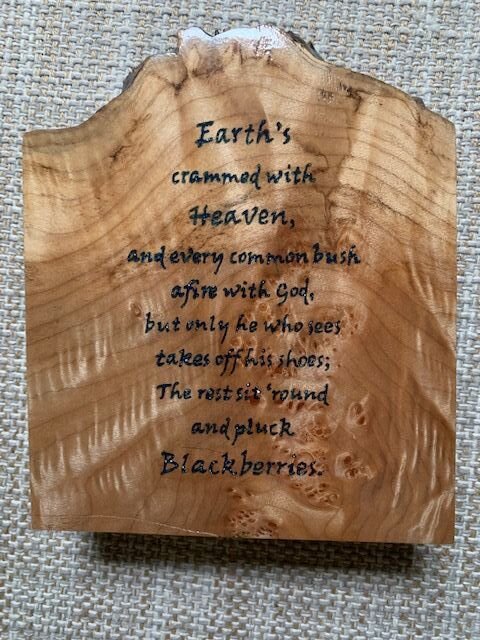 Earth's
crammed with
Heaven,
and every common bush
afire with God,
but only he who sees
takes off his shoes;
The rest sit 'round
and pluck
Blackberries.